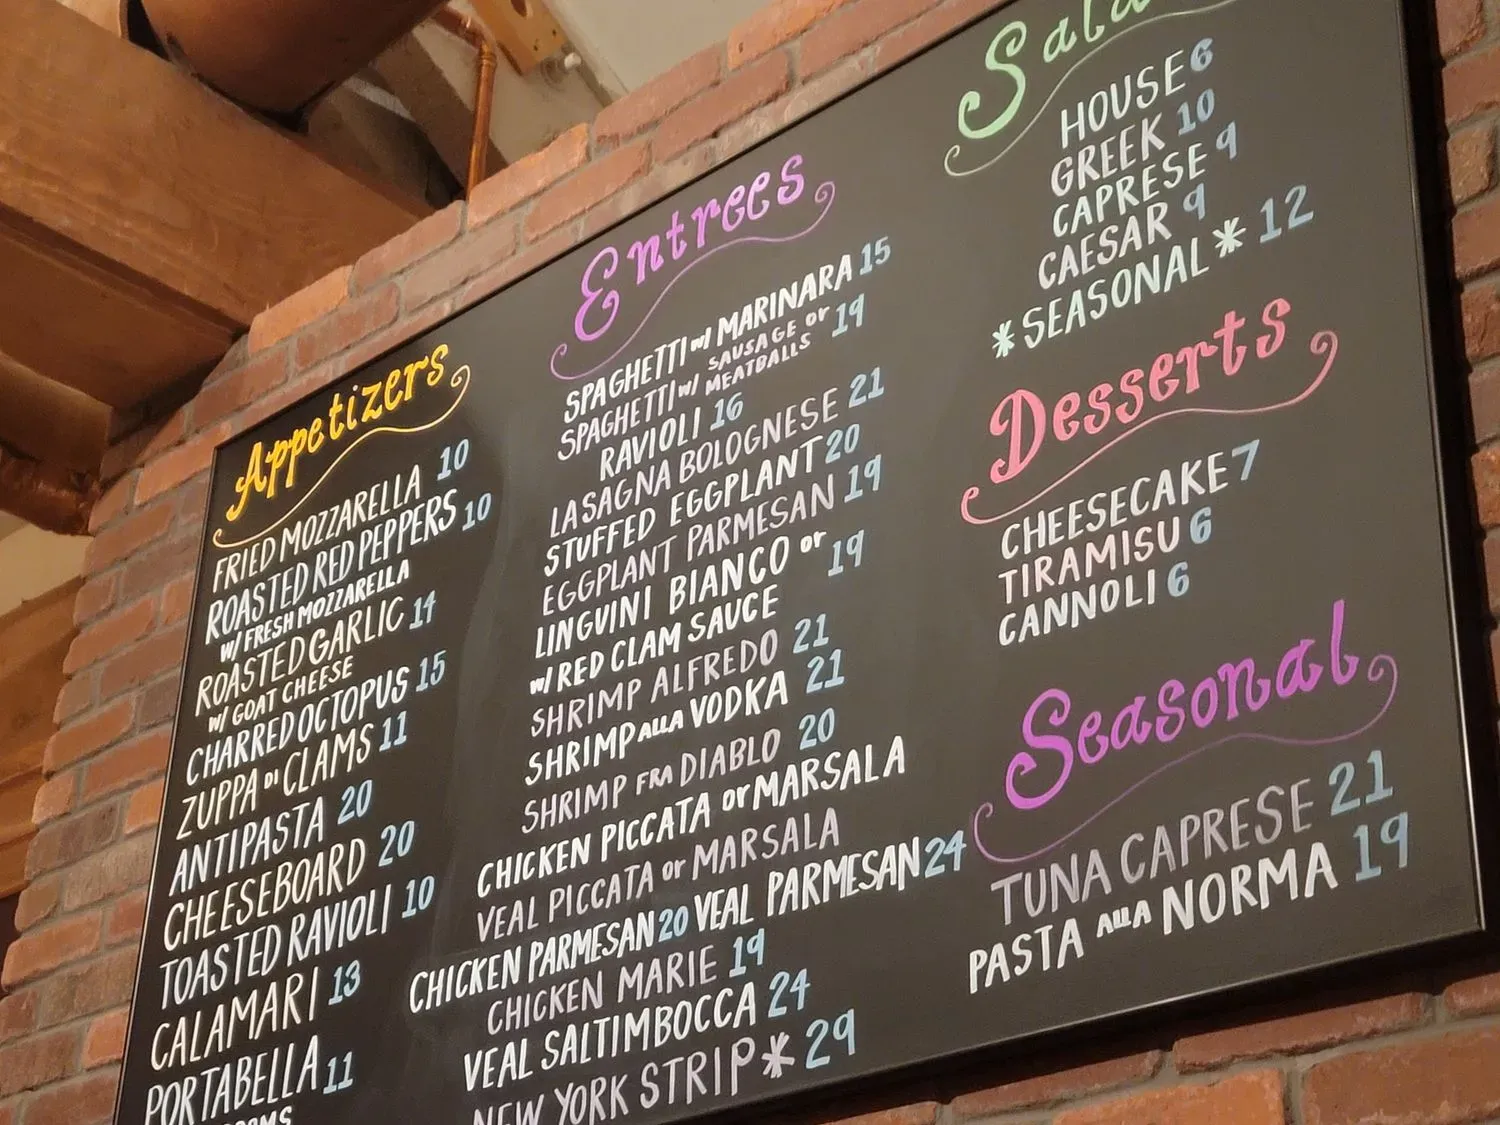 Appetizers
FRIED MOZZARELLA 10
ROASTED RED PEPPERS 10
w/ FRESH MOZZARELLA
ROASTED GARLIC 14
w/ GOAT CHEESE
CHARRED OCTOPUS 15
ZUPPA DI CLAMS 11
ANTIPASTA 20
CHEESEBOARD 20
TOASTED RAVIOLI 10
CALAMARI 13
PORTABELLA 11
Entrees
SPAGHETTI w/ MARINARA 15
SPAGHETTI w/ SAUSAGE or MEATBALLS 19
RAVIOLI 16
LASAGNA BOLOGNESE 21
STUFFED EGGPLANT 20
EGGPLANT PARMESAN 19
LINGUINI BIANCO or 19
w/ RED CLAM SAUCE
SHRIMP ALFREDO 21
SHRIMP ALLA VODKA 21
SHRIMP FRA DIABLO 20
CHICKEN PICCATA or MARSALA
VEAL PICCATA or MARSALA
CHICKEN PARMESAN 20 VEAL PARMESAN 24
CHICKEN MARIE 19
VEAL SALTIMBOCCA 24
NEW YORK STRIP* 29
HOUSE 6
GREEK 10
CAPRESE 9
CAESAR 9
*SEASONAL* 12
Desserts
CHEESECAKE 7
TIRAMISU 6
CANNOLI 6
Seasonal
TUNA CAPRESE 21
PASTA ALLA NORMA 19